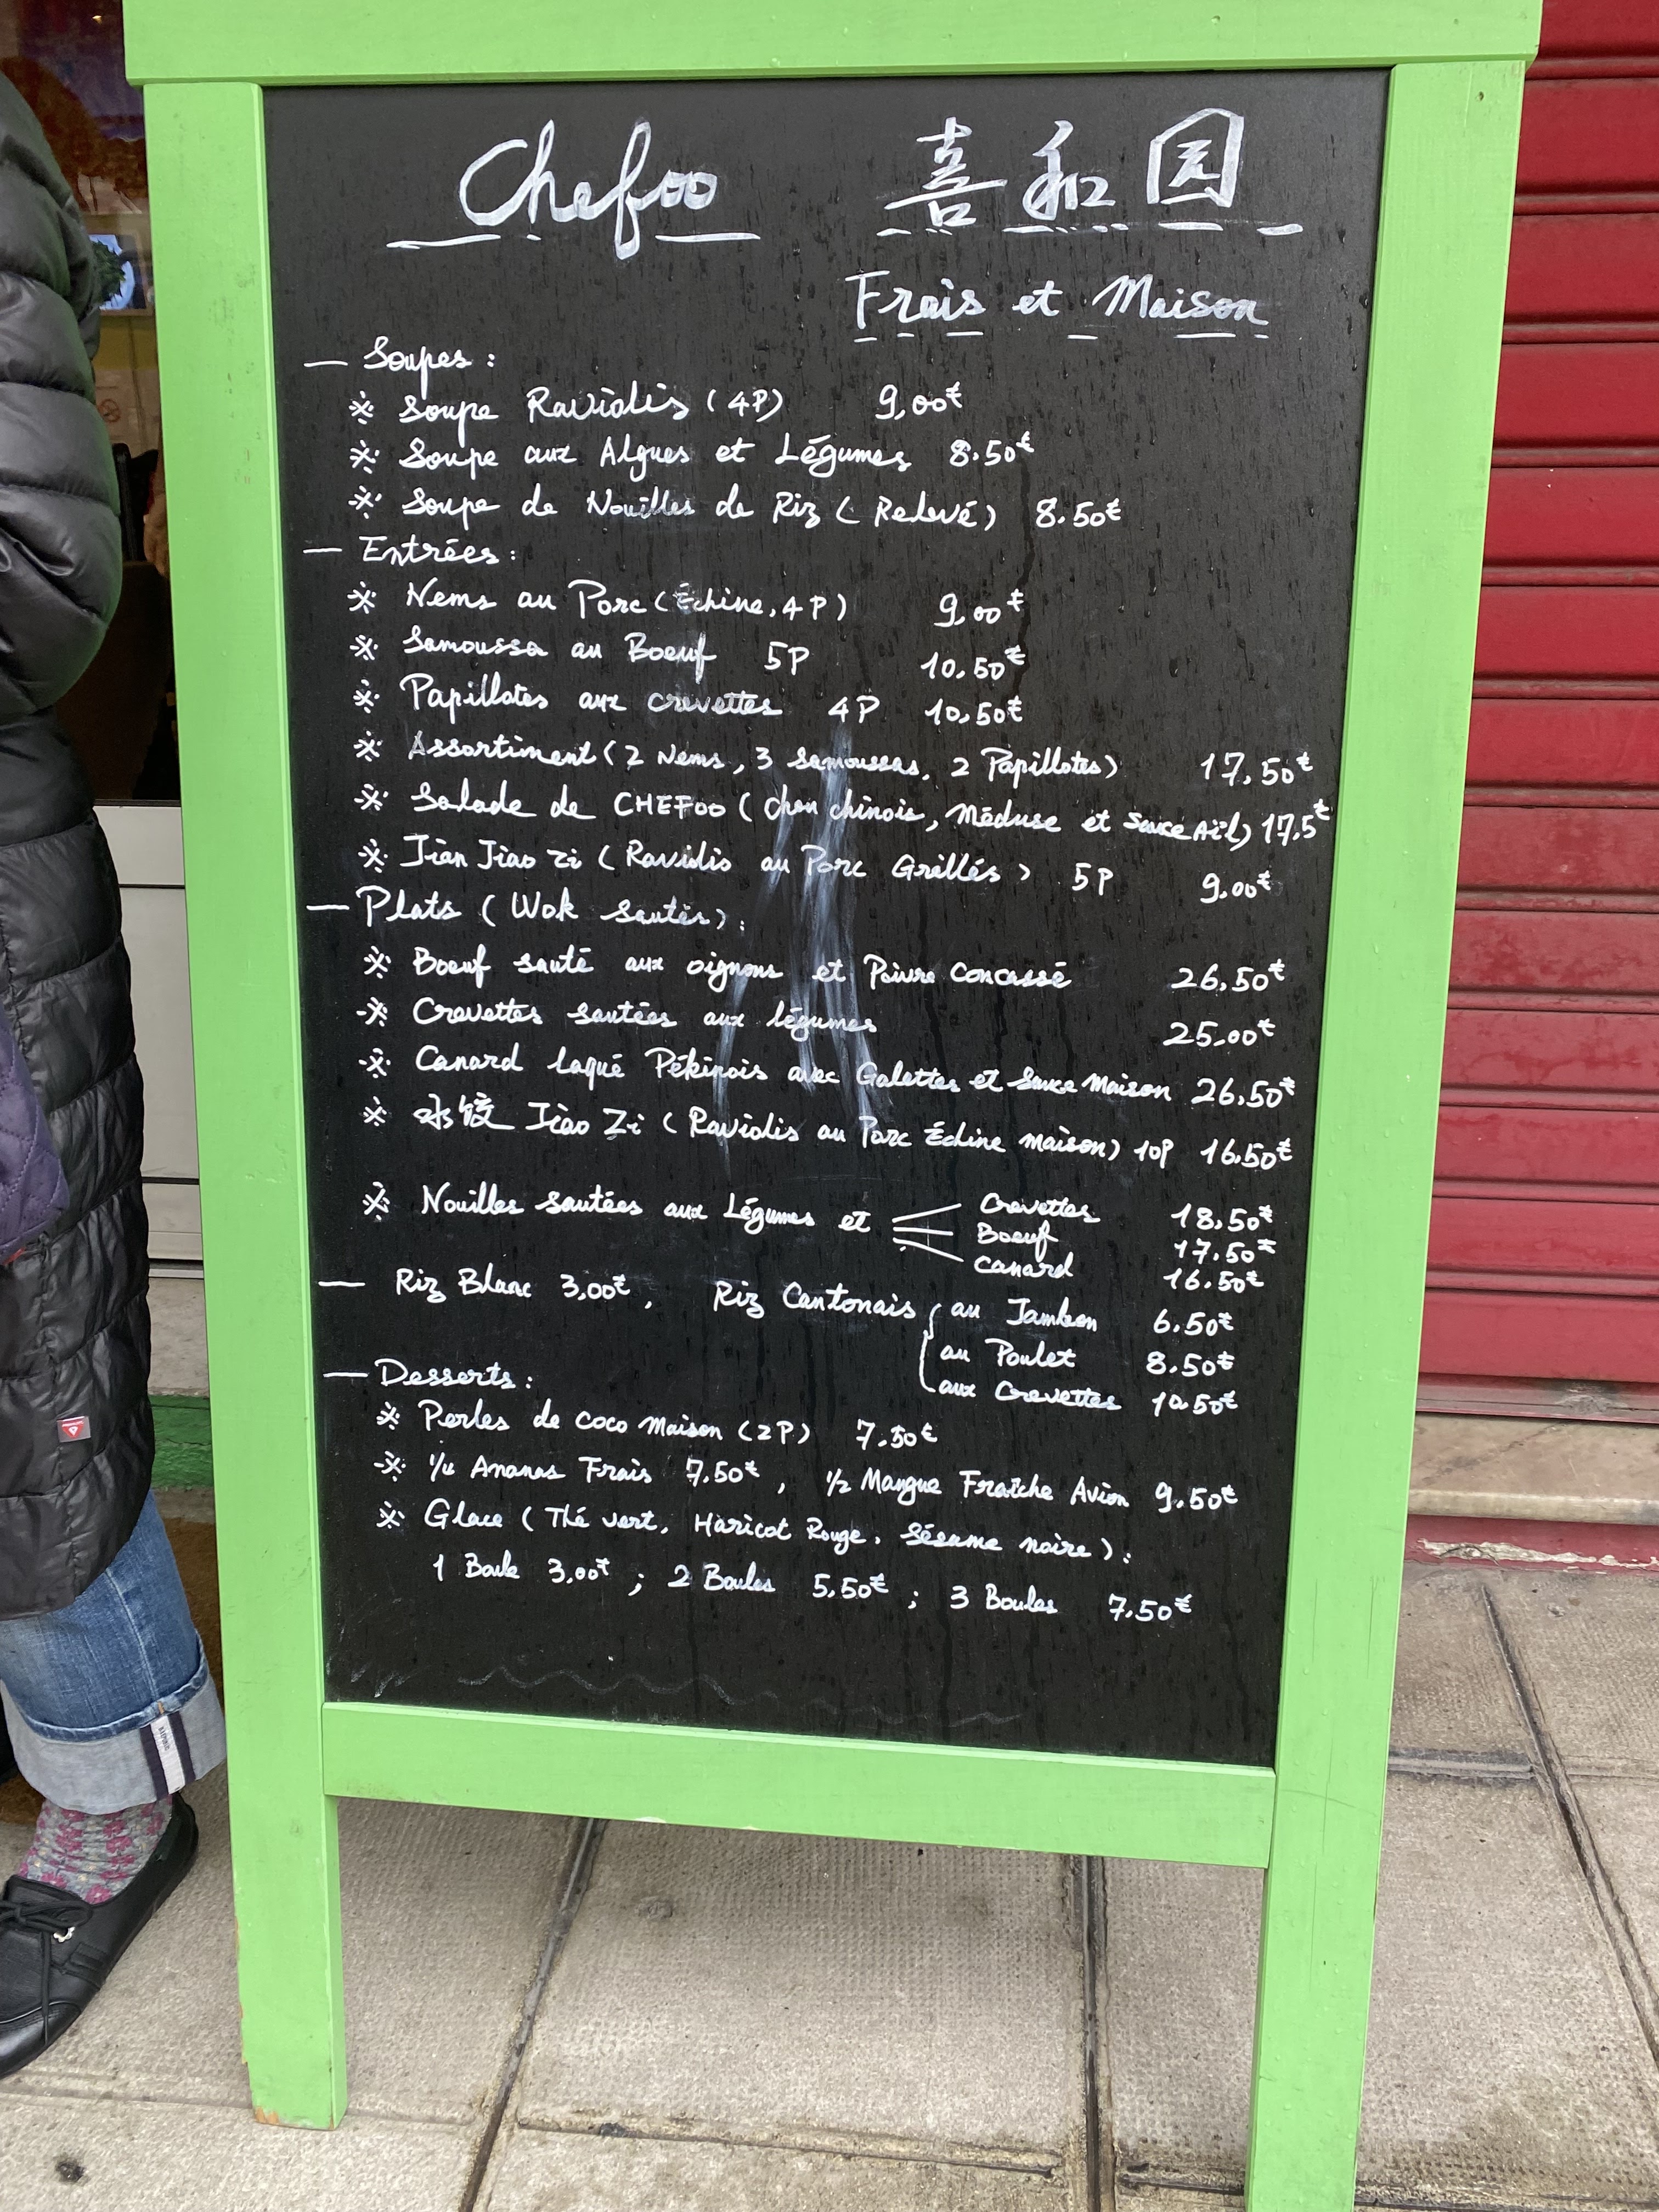 Chefoo 喜和园
Frais et Maison
— Soupes :
※ Soupe Raviolis (4P) 9,00€
※ Soupe aux Algues et Légumes 8.50€
※ Soupe de Nouilles de Riz (Relevé) 8.50€
— Entrées :
※ Nems au Porc (Échine, 4P) 9,00€
※ Samoussa au Boeuf 5P 10,50€
※ Papillotes aux crevettes 4P 10,50€
※ Assortiment (2 Nems, 3 Samoussas, 2 Papillotes) 17,50€
※ Salade de CHEFOO (chou chinois, Méduse et Sauce Aïl) 17.5€
※ Jian Jiao zi (Raviolis au Porc Grillés) 5P 9,00€
— Plats (Wok Sautés) :
※ Boeuf sauté aux oignons et Poivre Concassé 26,50€
※ Crevettes sautées aux légumes 25,00€
※ Canard laqué Pékinois avec Galettes et Sauce Maison 26,50€
※ 水饺 Jiao Zi (Raviolis au Porc Échine maison) 10P 16,50€
※ Nouilles sautées aux Légumes et Crevettes 18,50€
Boeuf 17.50€
Canard 16.50€
— Riz Blanc 3,00€, Riz Cantonais au Jambon 6.50€
au Poulet 8.50€
aux Crevettes 10.50€
— Desserts :
※ Perles de coco Maison (2P) 7.50€
※ 1/4 Ananas Frais 7,50€, 1/2 Mangue Fraîche Avion 9.50€
※ Glace (Thé vert, Haricot Rouge, Sésame noire) :
1 Boule 3,00€ ; 2 Boules 5,50€ ; 3 Boules 7,50€